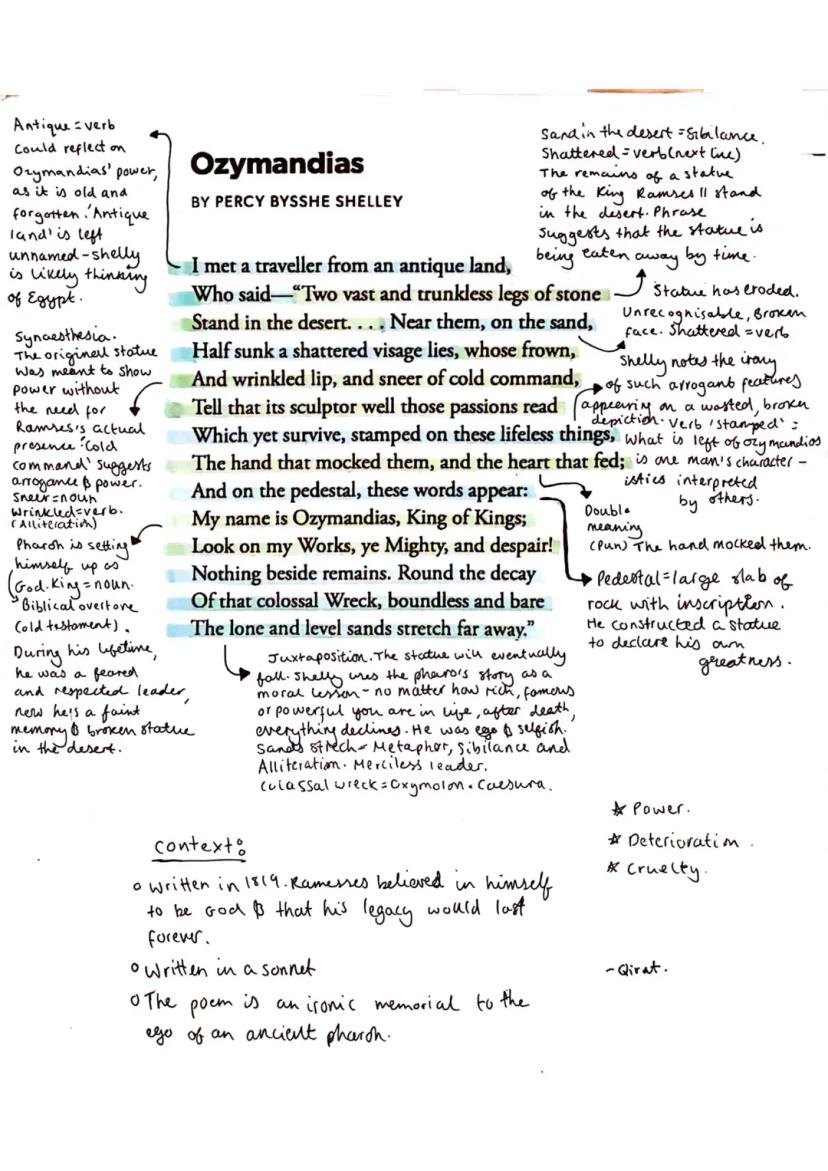 Ozymandias
BY PERCY BYSSHE SHELLEY
I met a traveller from an antique land,
Who said—“Two vast and trunkless legs of stone
Stand in the desert. . . . Near them, on the sand,
Half sunk a shattered visage lies, whose frown,
And wrinkled lip, and sneer of cold command,
Tell that its sculptor well those passions read
Which yet survive, stamped on these lifeless things,
The hand that mocked them, and the heart that fed;
And on the pedestal, these words appear:
My name is Ozymandias, King of Kings;
Look on my Works, ye Mighty, and despair!
Nothing beside remains. Round the decay
Of that colossal Wreck, boundless and bare
The lone and level sands stretch far away.”
Antique = verb
Could reflect on
Ozymandias' power,
as it is old and
forgotten. 'Antique
land' is left
unnamed - shelly
is likely thinking
of Egypt.
Synaesthesia.
The original statue
was meant to show
power without
the need for
Ramses's actual
presence. 'Cold
command' suggests
arrogance & power.
Sneer = noun
Wrinkled = verb.
(Alliteration)
Pharoh is setting
himself up as
God. King = noun.
Biblical overtone
(old testament).
During his lifetime,
he was a feared
and respected leader,
now he's a faint
memory & broken statue
in the desert.
Sand in the desert = Sibilance.
Shattered = verb (next line)
The remains of a statue
of the King Ramses II stand
in the desert. Phrase
suggests that the statue is
being eaten away by time.
Statue has eroded.
Unrecognisable, Broken
face. Shattered = verb
Shelly notes the irony
of such arrogant features
appearing on a wasted, broken
depiction. Verb 'stamped' =
What is left of ozymandias
is one man's character-
istics interpreted
by others.
Double
meaning
(Pun) The hand mocked them.
Pedestal = large slab of
rock with inscription.
He constructed a statue
to declare his own
greatness.
Juxtaposition. The statue will eventually
fall. Shelly uses the pharo's story as a
moral lesson - no matter how rich, famous
or powerful you are in life, after death,
everything declines. He was ego & selfish.
Sands strech = Metaphor, Sibilance and
Alliteration. Merciless leader.
Colassal wreck = Oxymolon. Caesura.
Context:
Written in 1819. Ramesses believed in himself
to be God & that his legacy would last
forever.
Written in a sonnet
The poem is an ironic memorial to the
ego of an ancient pharoh.
Power.
Deterioration.
Cruelty.
-Qirat.